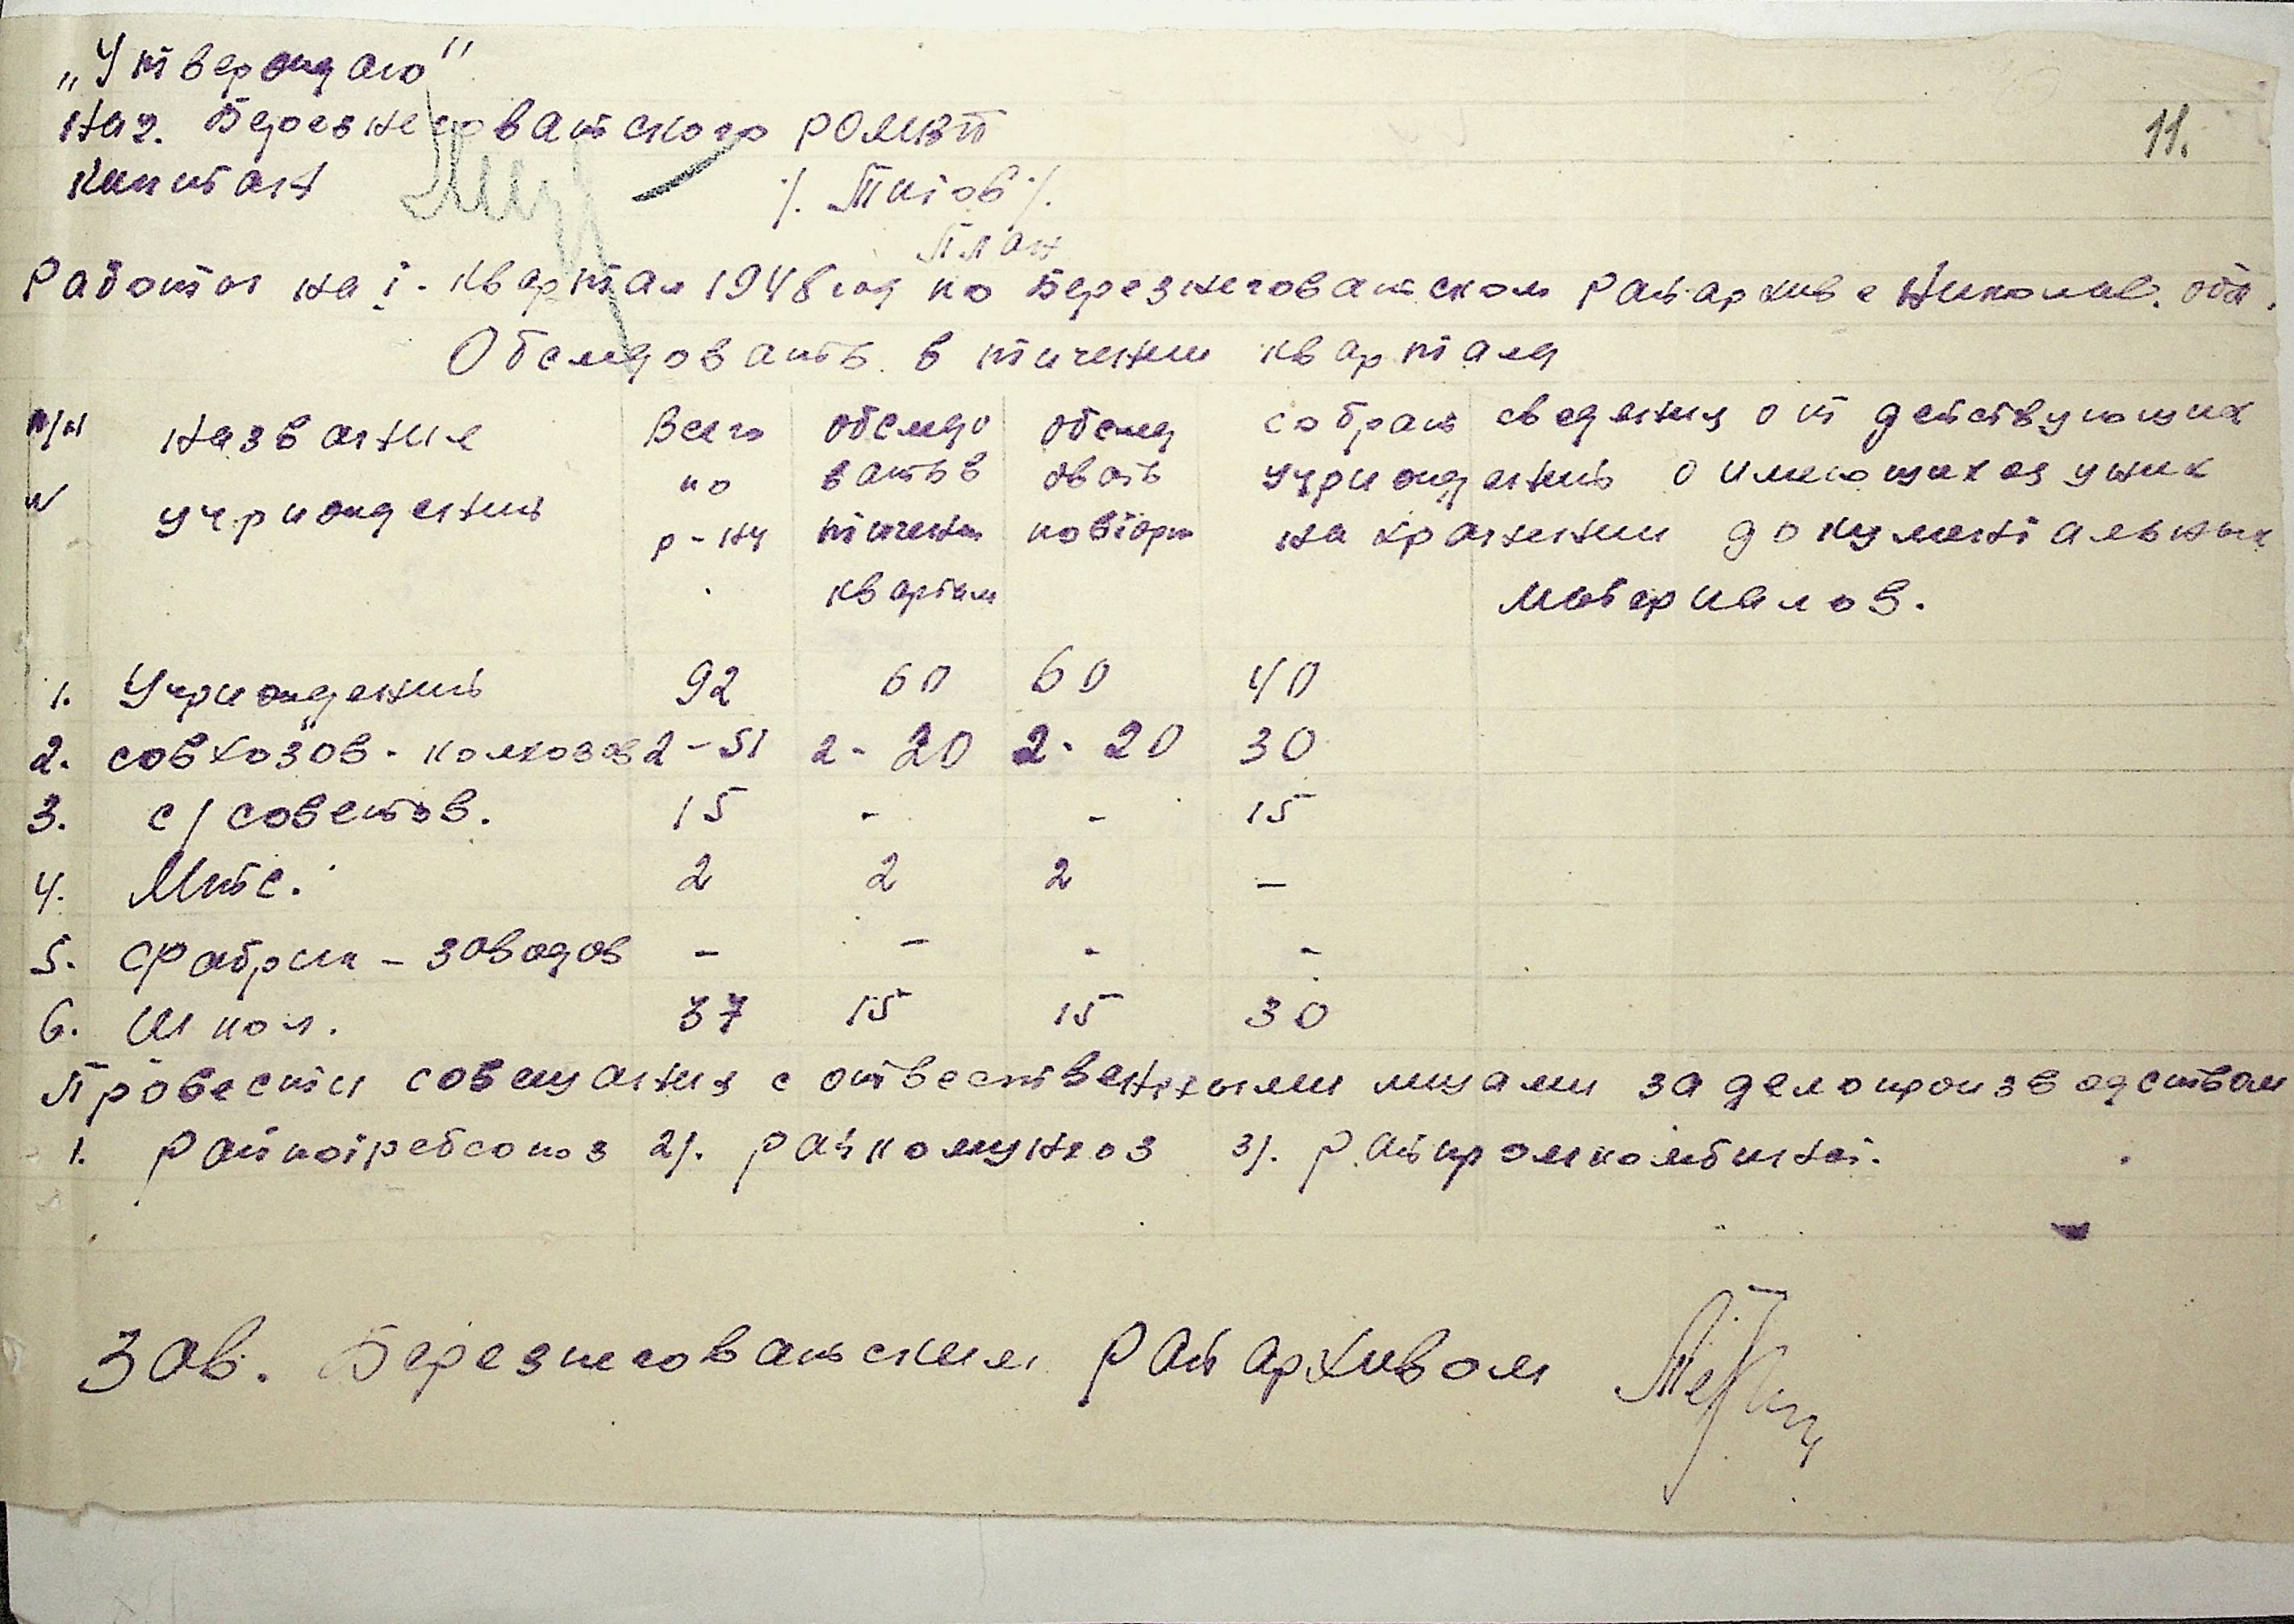 „Утверждаю"
11.
Нач. Березнеговатского РОМВД
Капитан /. Титов /.
План
Работы на I. квартал 1948 год по Березнеговатском райархиве Николаев. обл.
Обследовать в тичении квартала
п/н название Всего обследо обслед собрать сведения от действующих
№ учриждений по вать в овать учриждений о имеющихся у них
р-ну тичении повторн на хранении документальных
квартал материалов.
1. Учриждений 92 60 60 40
2. совхозов - колхозов 2-51 2-20 2-20 30
3. с/советов. 15 - - 15
4. Мтс. 2 2 2 -
5. Фабрик - заводов - - - -
6. Школ. 37 15 15 30
Провести совещания с ответственными лицами за делопроизводством
1. Райпотребсоюз 2/. Райкомунхоз 3/. Райпромкомбинат.
Зав. Березнеговатским Райархивом